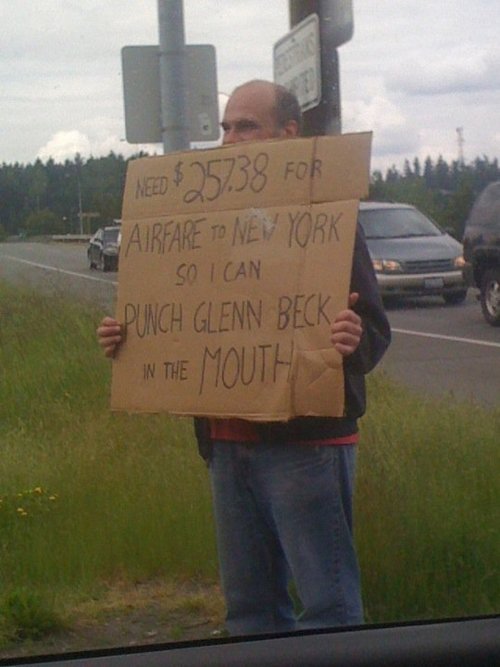 NEED $257.38 FOR
AIRFARE TO NEW YORK
SO I CAN
PUNCH GLENN BECK
IN THE MOUTH